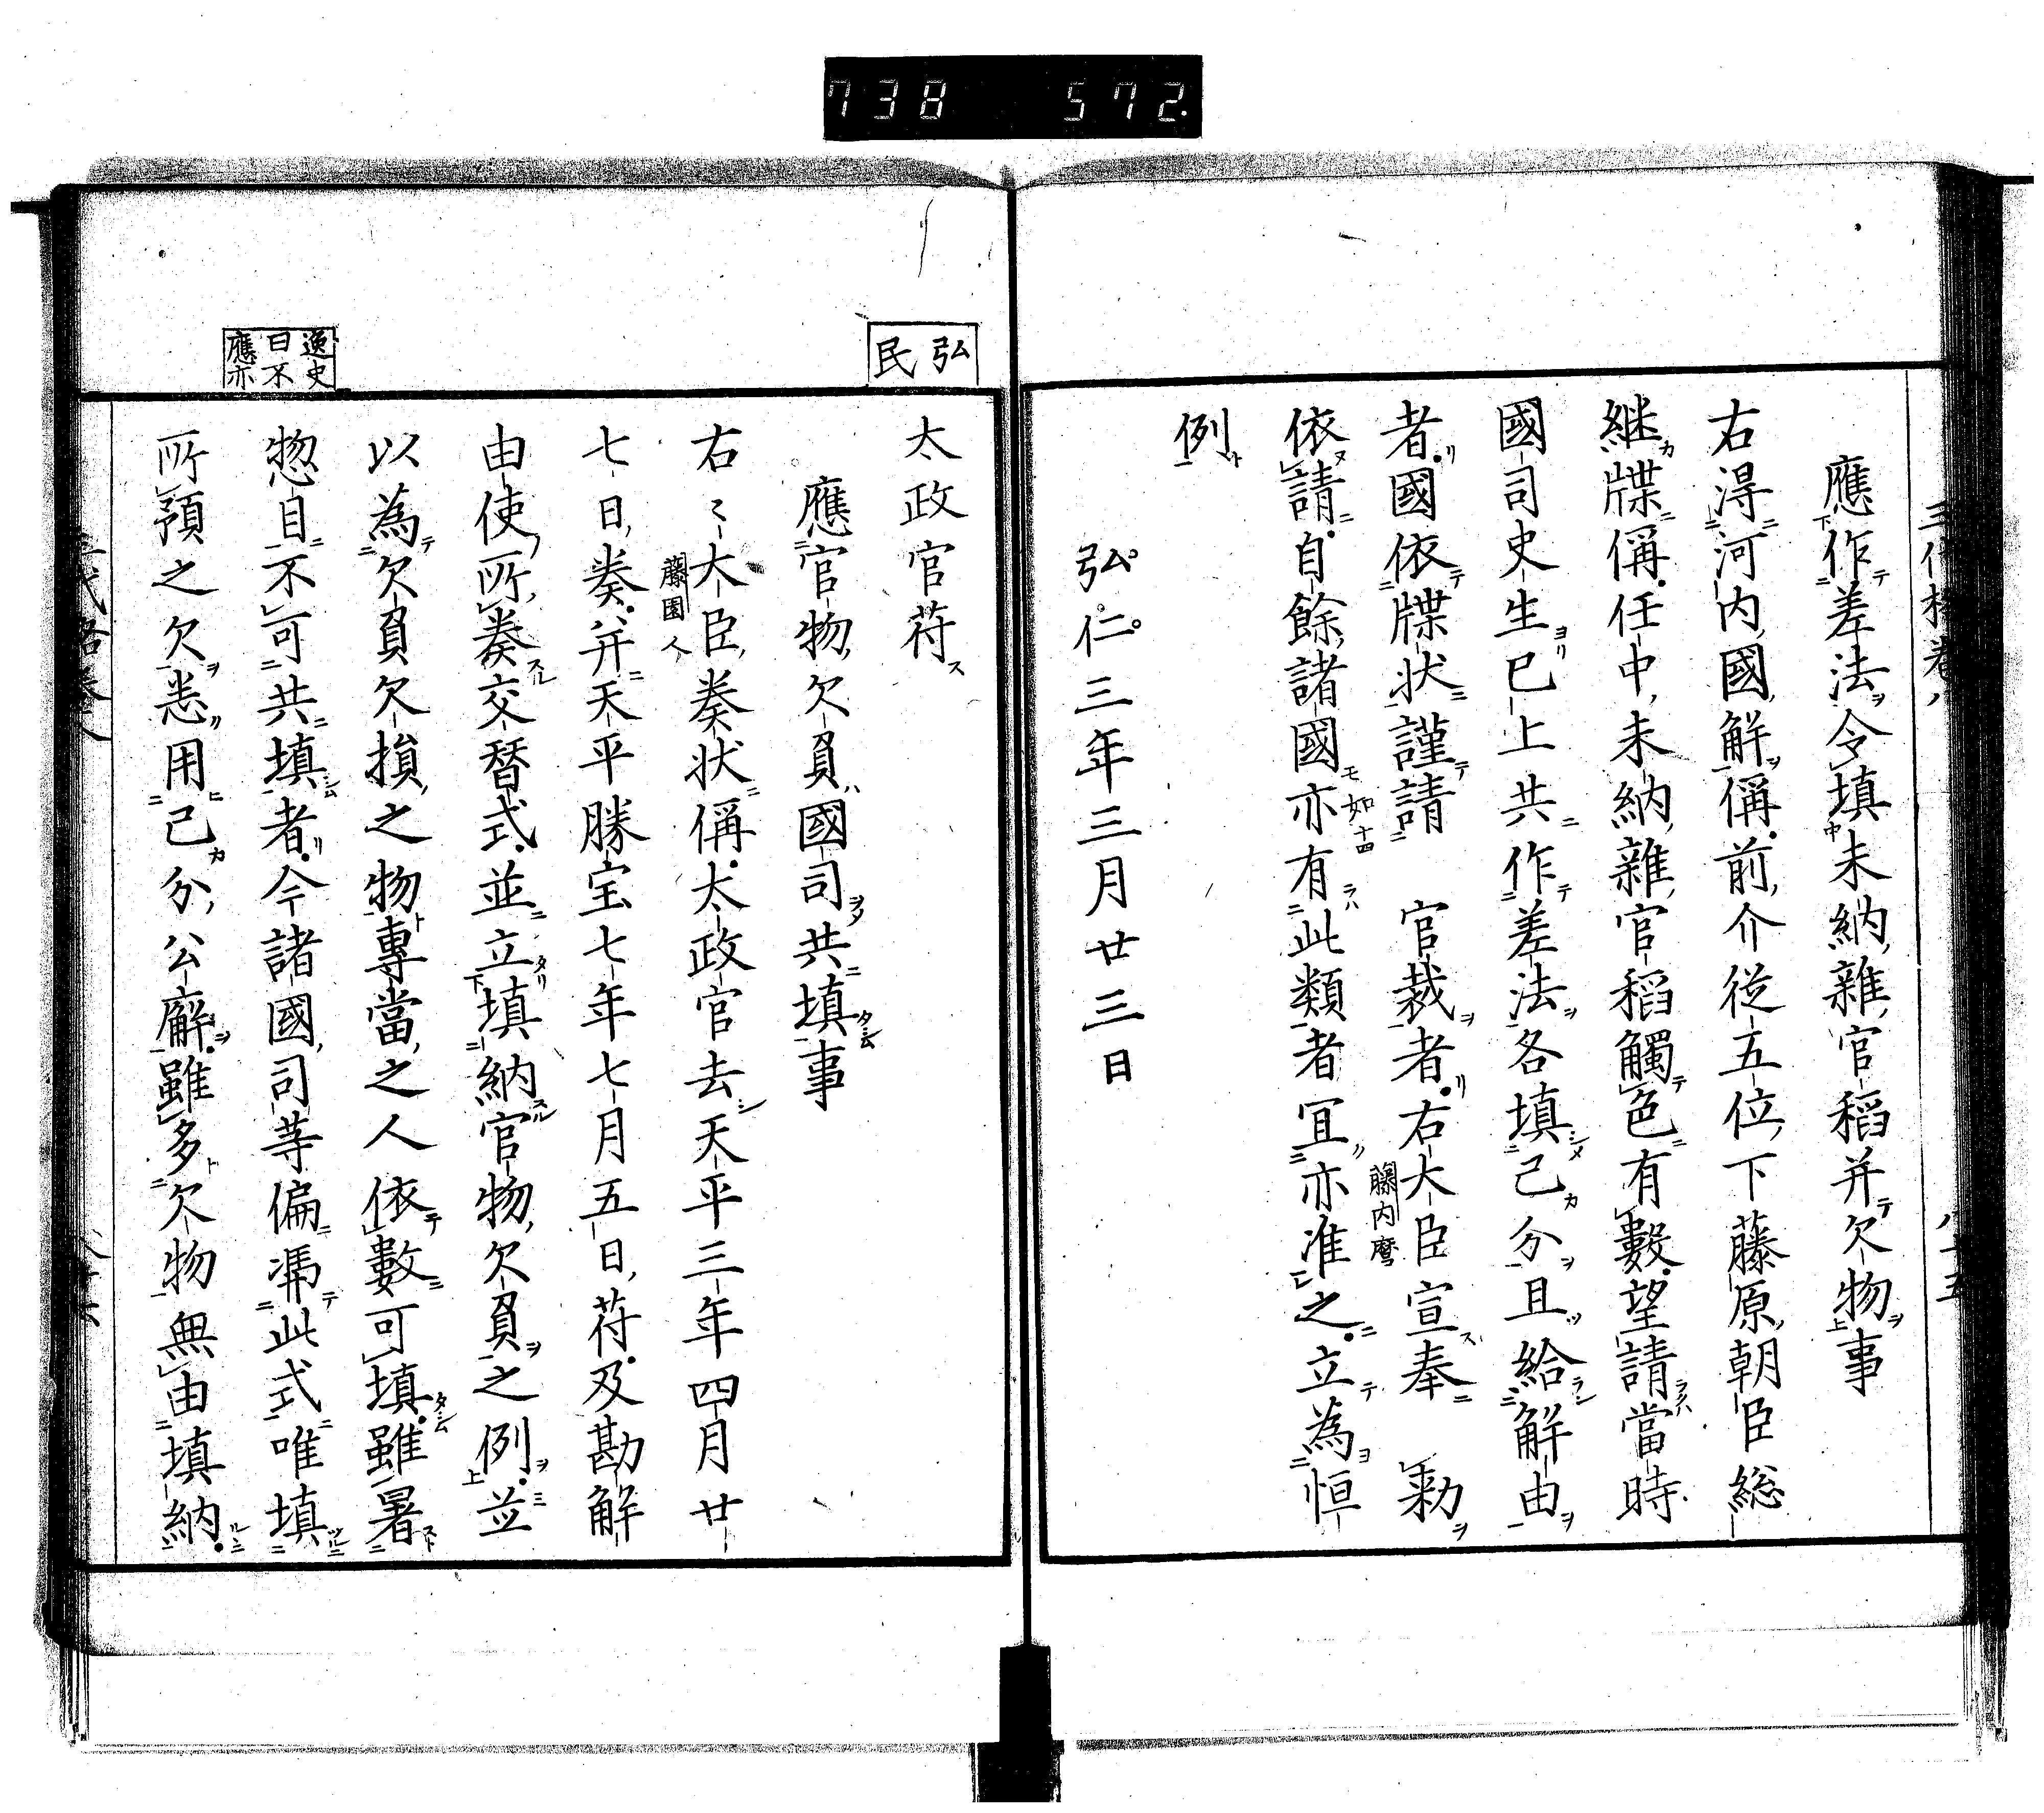 738 572.
三代格卷八 八十五
應作差法令填未納雜官稻并欠物事
右得河内國解偁前介從五位下藤原朝臣総
継牒偁任中未納雜官稻觸色有數望請當時
國司史生已上共作差法各填己分且給解由
者國依牒状謹請 官裁者右大臣宣奉 勅
藤内麿
依請自餘諸國亦有此類者宜亦准之立為恒
如十四
例
弘仁三年三月廿三日
弘民
太政官符
應官物欠負國司共填事
右々大臣奏状偁太政官去天平三年四月廿
藤園人
七日奏并天平勝宝七年七月五日符及勘解
由使所奏交替式並立填納官物欠負之例並
以為欠負欠損之物專當之人依數可填雖署
惣目不可共填者今諸國司等偏馮此式唯填
逸史曰不應亦
所預之欠悉用己分公廨雖多欠物無由填納